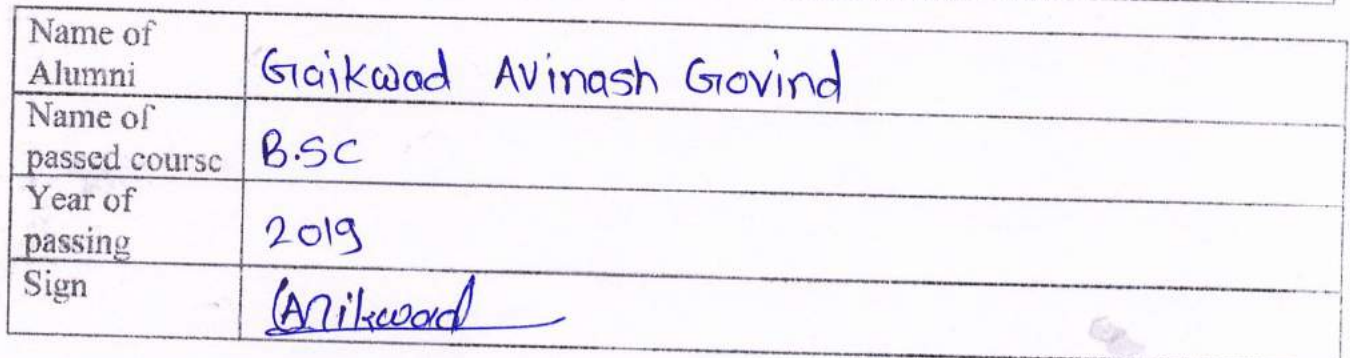 Name of
Alumni
Gaikwad Avinash Govind
Name of
passed course
B.SC
Year of
passing
2019
Sign